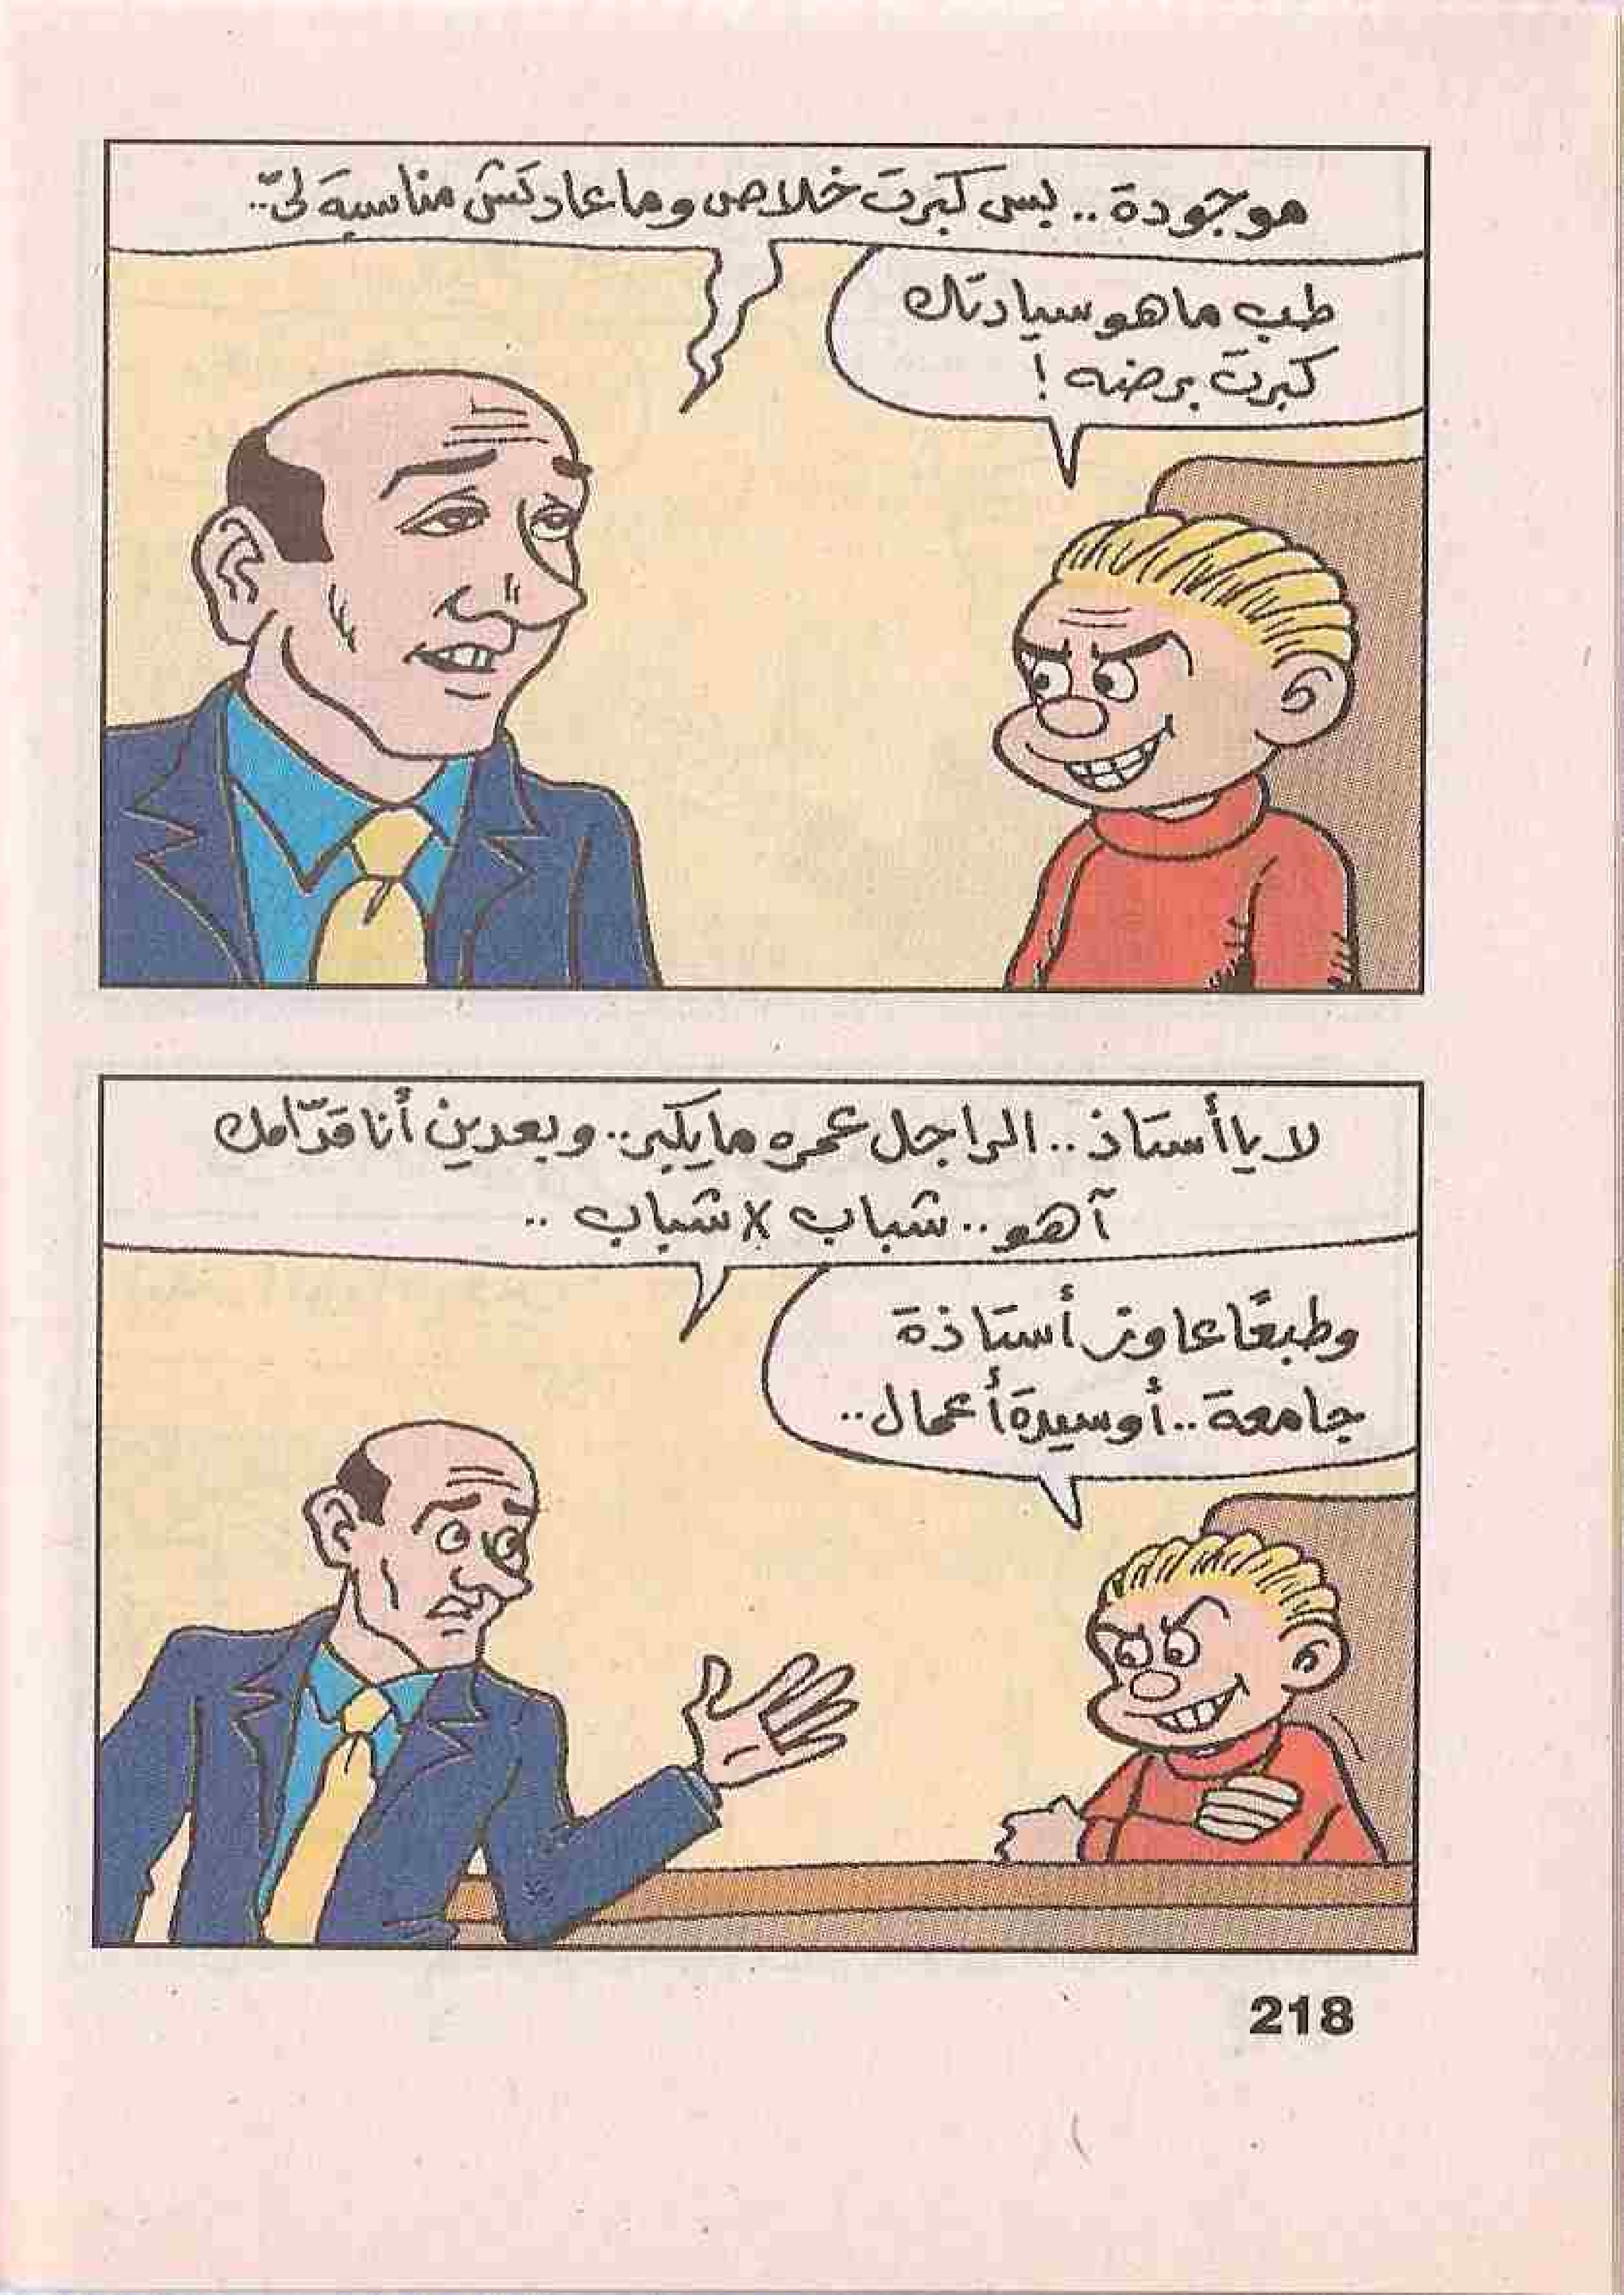 موجودة.. بس كبرت خلاص وما عادتش مناسبة لىّ..
طب ما هو سيادتك
كبرت برضه!
لا يا أستاذ.. الراجل عمره ما يكبر.. وبعدين أنا قدّامك
آهو.. شباب x شباب..
وطبعًا عاوز أستاذة
جامعة.. أو سيدة أعمال..
218